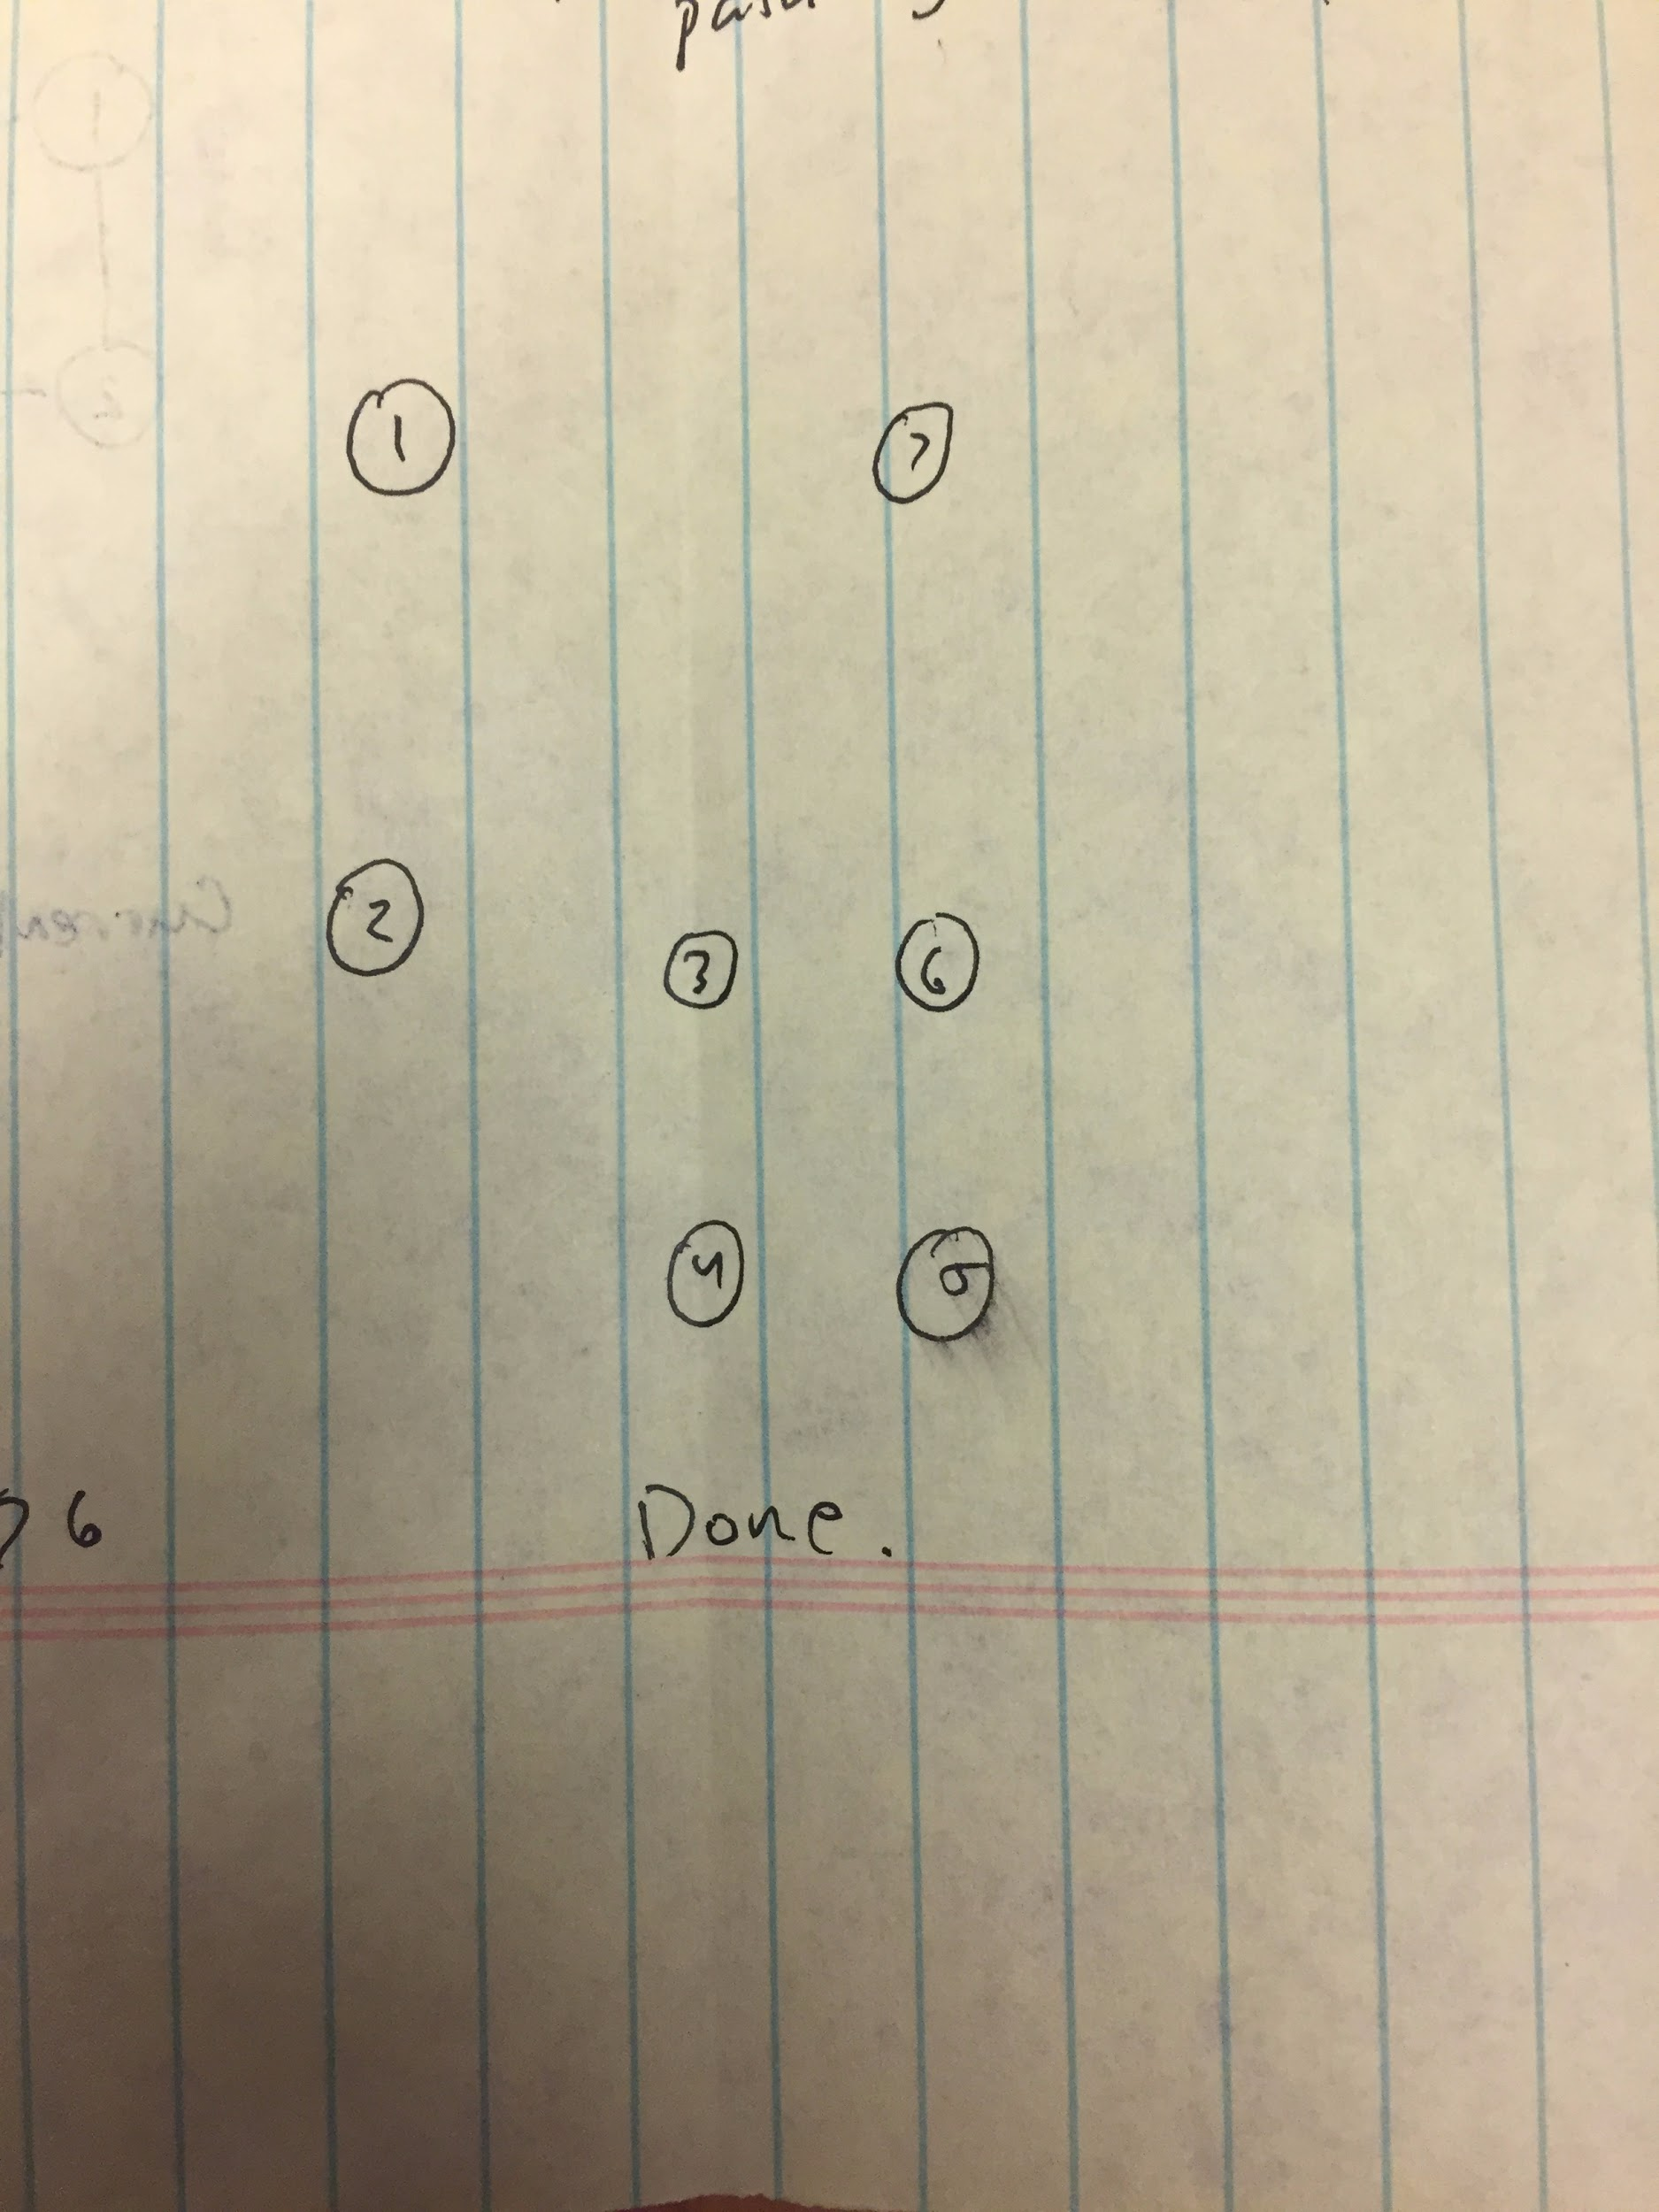 1 7
2 3 6
4 5
6 Done.